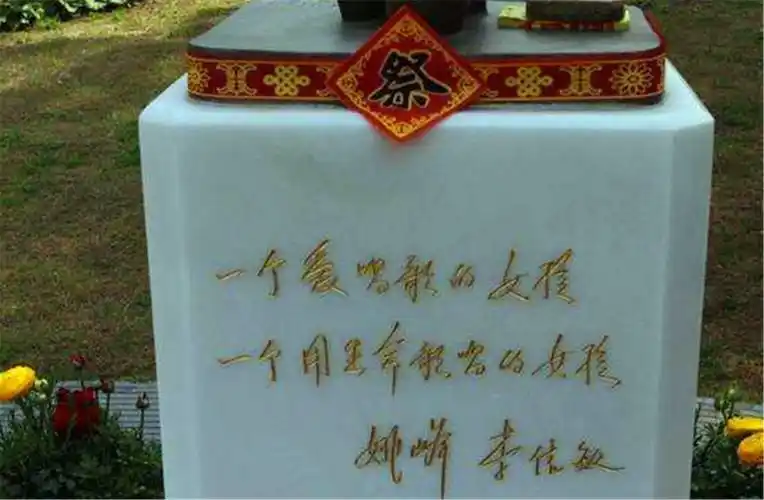 祭
一个爱唱歌的女孩
一个用生命歌唱的女孩
姚峰 李信敏